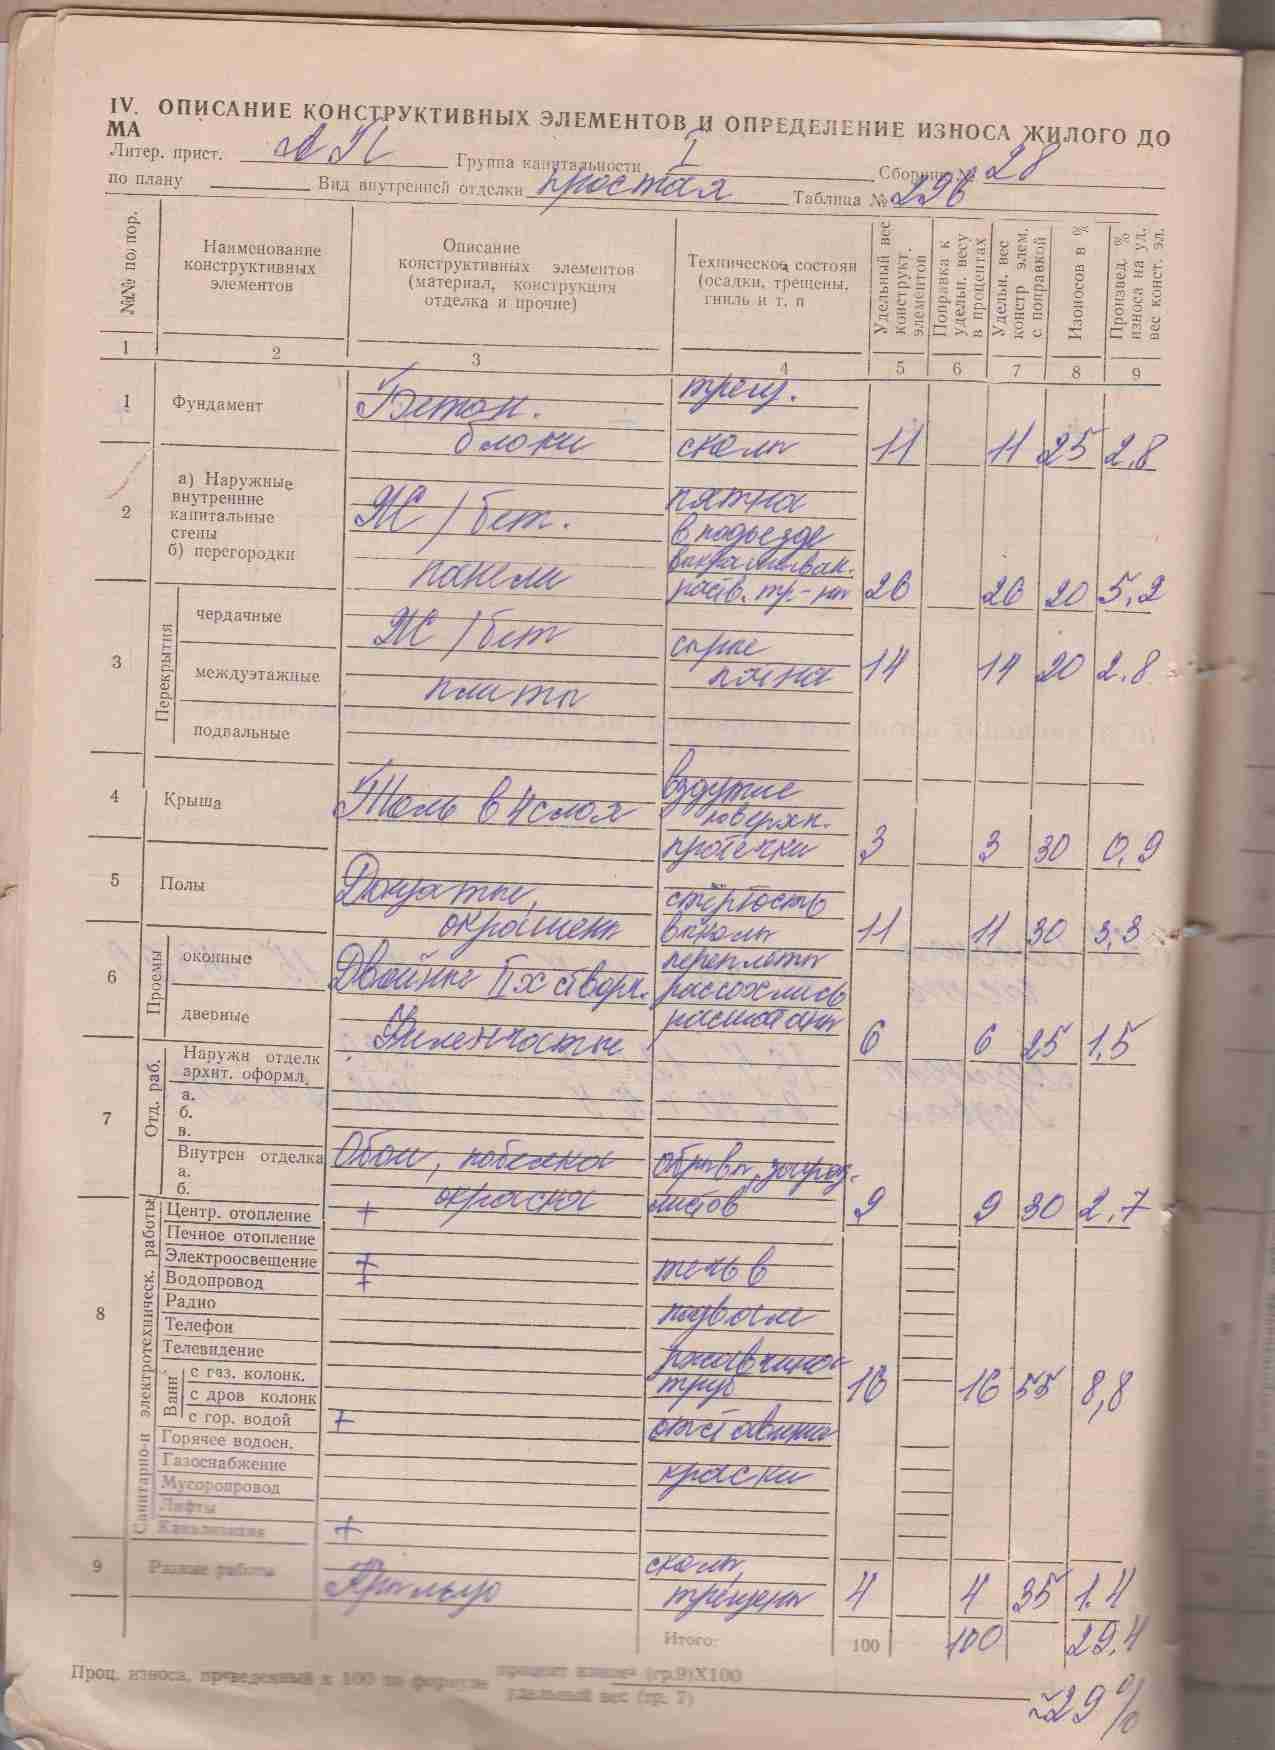 IV. ОПИСАНИЕ КОНСТРУКТИВНЫХ ЭЛЕМЕНТОВ И ОПРЕДЕЛЕНИЕ ИЗНОСА ЖИЛОГО ДО
МА
Литер. прист. Группа капитальности I Сборник № 28
по плану Вид внутренней отделки простая Таблица № 29б
№№ по пор.
Наименование конструктивных элементов
Описание конструктивных элементов (материал, конструкция отделка и прочие)
Техническое состоян (осадки, трещены, гниль и т. п
Удельный вес конструкт. элементов
Поправка к удельн. весу в процентах
Удельн. вес констр элем. с поправкой
Изоносов в %
Произвед. % износа на уд. вес конст. эл.
1 2 3 4 5 6 7 8 9
1 Фундамент Бетон. трещ.
блоки сколы 11 11 25 2,8
2 а) Наружные внутренние капитальные стены
б) перегородки
Ж/бет. пятна
в подъезде
выкрашиван.
панели раств. тр-ны 26 26 20 5,2
3 Перекрытия
чердачные Ж/бет сырые
междуэтажные плиты пятна 14 14 20 2.8
подвальные
4 Крыша Толь в 4 слоя вздутие
поверхн.
протечки 3 3 30 0,9
5 Полы Дощатые, стёртость
окрашены сколы 11 11 30 3,3
6 Проемы
оконные Двойные 2х створ. переплеты
рассохлись
дверные Филенчатые расшатаны 6 6 25 1.5
7 Отд. раб.
Наружн отделк
архит. оформл.
а.
б.
в.
Внутрен отделка Обои, побелка обрывы, загряз.
а.
б. окраска листов 9 9 30 2,7
8 Санитарно-и электротехническ. работы
Центр. отопление +
Печное отопление
Электроосвещение + течь в
Водопровод +
Радио подвале
Телефон
Телевидение ржавчина
Ванн
с газ. колонк. труб 16 16 55 8,8
с дров колонк
с гор. водой + отставание
Горячее водосн.
Газоснабжение краски
Мусоропровод
Лифты
Канализация +
9 Разные работы Крыльцо сколы,
трещины 4 4 35 1.4
Итого: 100 100 29,4
Проц. износа, приведенный к 100 по формуле процент износа (гр.9)Х100
удельный вес (гр. 7)
~29%